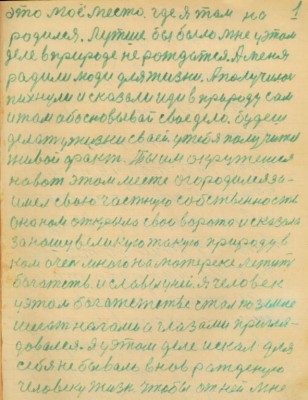 1
это моё место, где я там на
родился. Лутше бы было мне у этом
деле в природе не рождатся. А меня
радили люди для жизни. А получилос
пихнули и сказали иди в прыроду сам
и там абосновывай своё дело. будеш
делат у жизни своей у тебя палучится
живой факт. Ты им окружешся
на вот этом месте огородился за-
имел свою частную собственность
она нам открыла свои ворота и сказала
за нашу великую такую прыроду в
ней очен много на
богатств и я человек
у этом багатстве стал по земле
шагат нагами а глазами пригля-
довался. Я у этом деле искал для
себя небывалу внов рождённую
человеку жизн. чтобы от ней мне